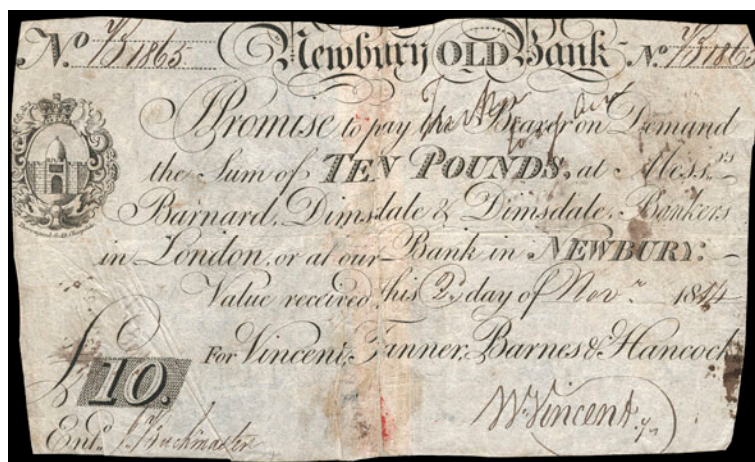 No. B1865 Newbury OLD Bank No. B1865
I Promise to pay the Bearer on Demand
the Sum of TEN POUNDS, at Mess.rs
Barnard, Dimsdale & Dimsdale, Bankers
in London, or at our Bank in NEWBURY:
Value received this 2 day of Nov.r 1814
For Vincent, Tanner, Barnes & Hancock
£10.
W. Vincent
Ent.d J. Buckmaster